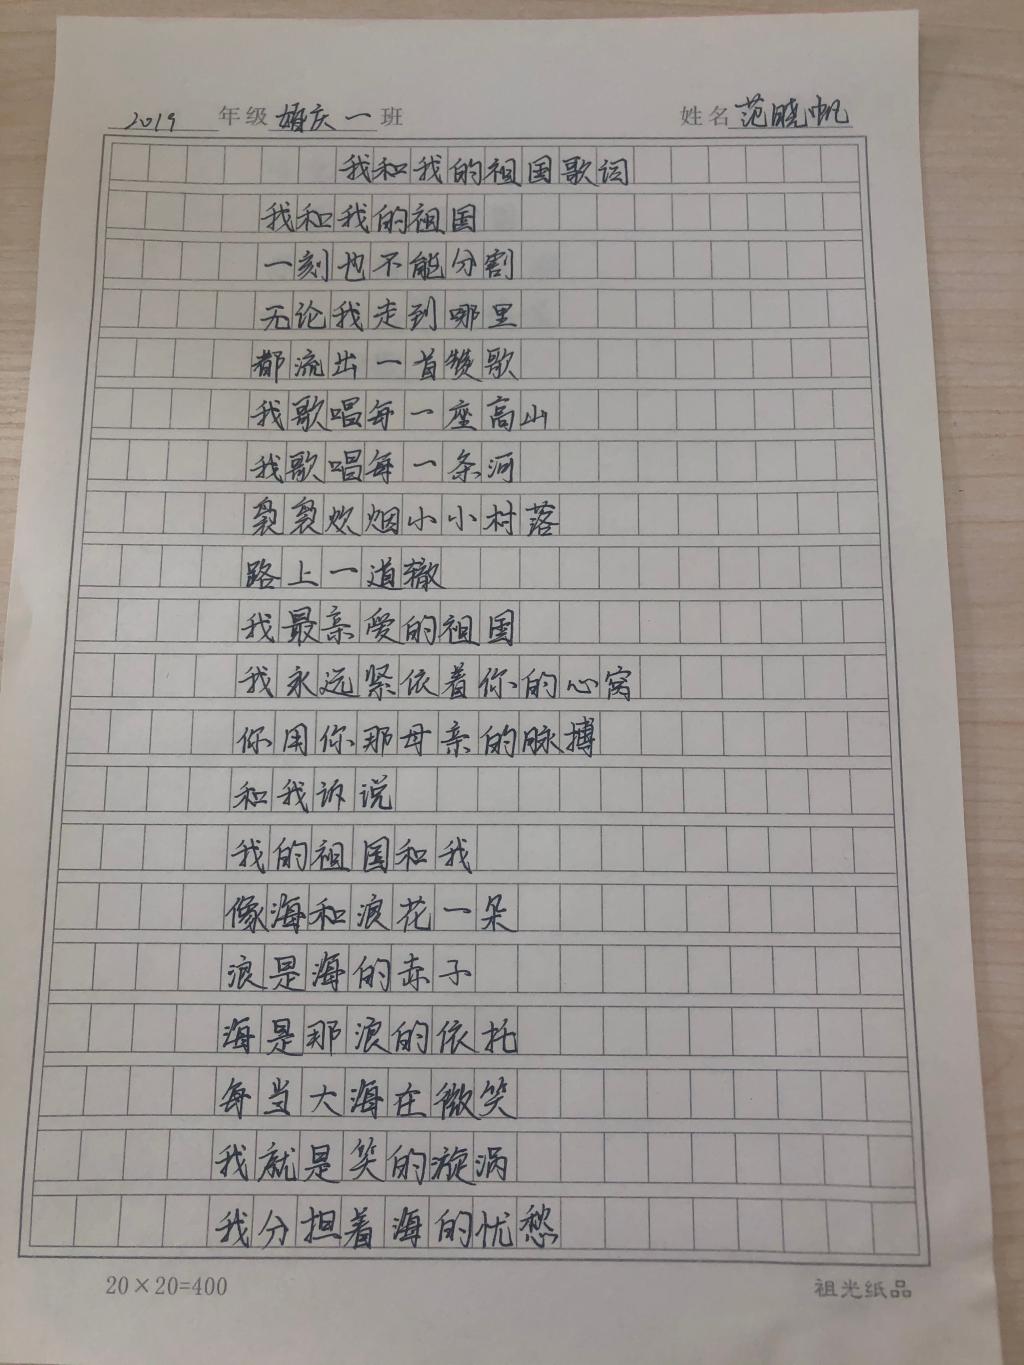 2019 年级 婚庆一 班 姓名 范晓帆
我和我的祖国歌词
我和我的祖国
一刻也不能分割
无论我走到哪里
都流出一首赞歌
我歌唱每一座高山
我歌唱每一条河
袅袅炊烟小小村落
路上一道辙
我最亲爱的祖国
我永远紧依着你的心窝
你用你那母亲的脉搏
和我诉说
我的祖国和我
像海和浪花一朵
浪是海的赤子
海是那浪的依托
每当大海在微笑
我就是笑的漩涡
我分担着海的忧愁
20×20=400 祖光纸品